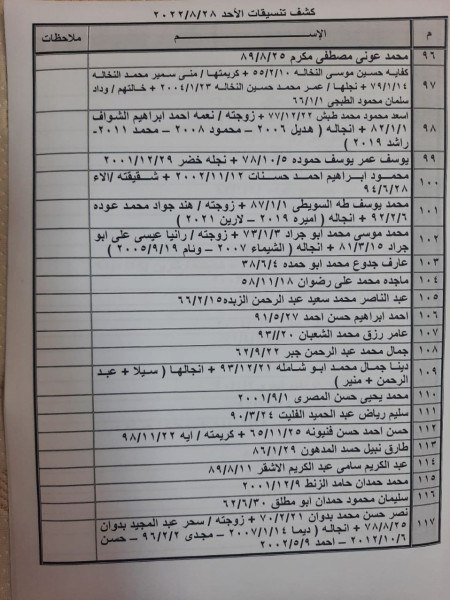 كشف تنسيقات الأحد ٢٠٢٢/٨/٢٨
م الإســـــم ملاحظات
٩٦ محمد عونى مصطفى مكرم ٨٩/٨/٢٥
٩٧ كفايه حسين موسى النخاله ٥٥/٢/١٠ + كريمتها / منى سمير محمد النخاله
٧٩/١/١٤ + نجلها / عمر محمد حسين النخاله ٢٠٠٤/١/٢٣ + خالتهم / وداد
سلمان محمود الطبجى ٦٦/١/١
٩٨ اسعد محمود محمد طبش ٧٧/١٢/٢٢ + زوجته / نعمه احمد ابراهيم الشواف
٨٢/١/١ + انجاله ( هديل ٢٠٠٦ – محمود ٢٠٠٨ – محمد ٢٠١١-
راشد ٢٠١٩ )
٩٩ يوسف عمر يوسف حموده ٧٨/١٠/٥ + نجله خضر ٢٠٠١/١٢/٢٩
١٠٠ محمـود ابراهيم احمـد حسنات ٢٠٠٢/١١/١٢ + شقيقته /الاء
٩٤/٦/٢٨
١٠١ محمد يوسف طه السويطى ٨٧/١/١ + زوجته / هند جواد محمد عوده
٩٢/٢/٦ + انجاله ( اميره ٢٠١٩ – لارين ٢٠٢١ )
١٠٢ محمد موسى محمد ابو جراد ٧٣/١/٣ + زوجته / رانيا عيسى على ابو
جراد ٨١/٣/١٥ + انجاله ( الشيماء ٢٠٠٧ – ونام ٢٠٠٥/٩/١٩ )
١٠٣ عارف جدوع محمد ابو حمده ٣٨/٦/٤
١٠٤ ماجده محمد على رضوان ٥٨/١١/١٨
١٠٥ عبد الناصر محمد سعيد عبد الرحمن الزبده ٦٦/٢/١٥
١٠٦ احمد ابراهيم حسن احمد ٩١/٥/٢٧
١٠٧ عامر رزق محمد الشعبان ٩٣//٢٠
١٠٨ جمال محمد عبد الرحمن جبر ٦٢/٩/٢٢
١٠٩ دينـا جمال محمـد ابـو شـامله ٩٣/١٢/٢١ + انجالهـا ( سـيلا + عبـد
الرحمن + منير )
١١٠ محمد يحيى حسن المصرى ٢٠٠١/٩/١
١١١ سليم رياض عبد الحميد الفليت ٩٠/٣/٢٤
١١٢ حسن احمد حسن قنيونه ٦٥/١١/٢٥ + كريمته / ايه ٩٨/١١/٢٢
١١٣ طارق نبيل حسد المدهون ٨٦/١/٢٩
١١٤ عبد الكريم سامى عبد الكريم الاشقر ٨٩/٨/١١
١١٥ محمد حمدان حامد الزنط ٢٠٠١/١٢/٩
١١٦ سليمان محمود حمدان ابو مطلق ٦٢/٦/٣٠
١١٧ نصر حسن محمد بدوان ٧٠/٢/٢١ + زوجته / سحر عبد المجيد بدوان
٧٨/٨/٢٥ + انجاله ( ديما ٢٠٠٧/١/١٤ – مجدى ٩٦/٢/٢ – حسن
٢٠١٢/١٠/٦ – احمد ٢٠٠٢/٥/٩